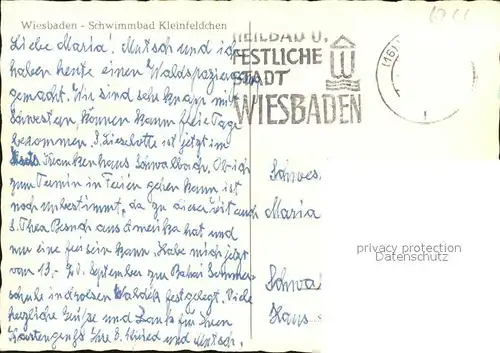 Wiesbaden - Schwimmbad Kleinfeldchen
Liebe Maria! Mutsch und ich
haben heute einen Waldspaziergang
gemacht. Wir sind sehr knapp mit
Schwestern, können kaum freie Tage
bekommen. S. Lieselotte ist jetzt im
Krankenhaus Schwalbach. Ob ich
zum Termin in Ferien gehen kann ist
noch unbestimmt, da zu dieser Zeit auch
S. Thea Besuch aus Amerika hat und
nur eine frei sein kann. Habe mich jetzt
vom 13.- 20. September zur Bahai Sommer-
schule in Waldeck festgelegt. Viele
herzliche Grüße und Dank für Ihren
Kartengruß Ihre S. und Mutsch.
HEILBAD U.
FESTLICHE
STADT
WIESBADEN
(16)
Schwes
Maria
Schwal
Haus
privacy protection
Datenschutz